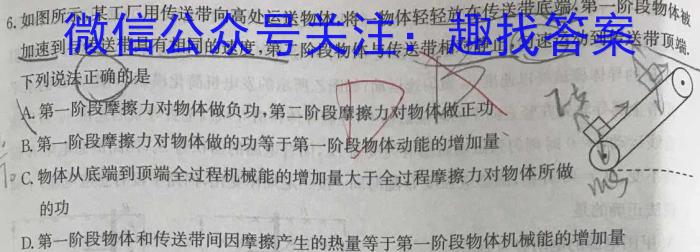 6.如图所示,某工厂用传送带向高处运送物体,将一物体轻轻放在传送带底端,第一阶段物体被
加速到与传送带具有相同的速度,第二阶段物体与传送带相对静止,匀速运动到传送带顶端.
微信公众号关注:趣找答案
下列说法正确的是
A.第一阶段摩擦力对物体做负功,第二阶段摩擦力对物体做正功
B.第一阶段摩擦力对物体做的功等于第一阶段物体动能的增加量
C.物体从底端到顶端全过程机械能的增加量大于全过程摩擦力对物体所做
的功
D.第一阶段物体和传送带间因摩擦产生的热量等于第一阶段物体机械能的增加量
mg